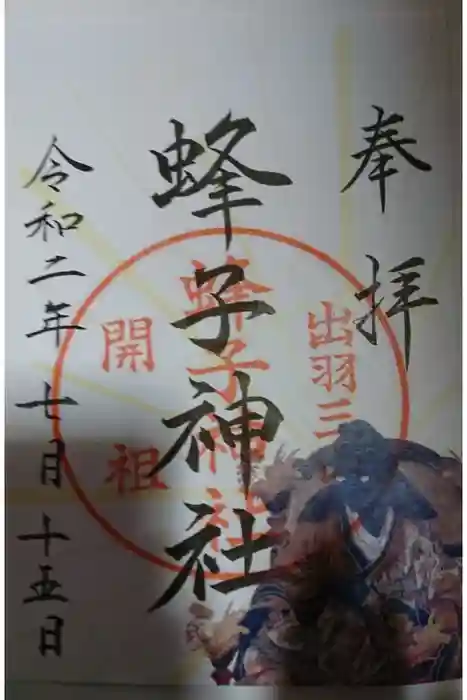 奉拝
蜂子神社
出羽三
蜂子神社
開祖
令和二年七月十五日